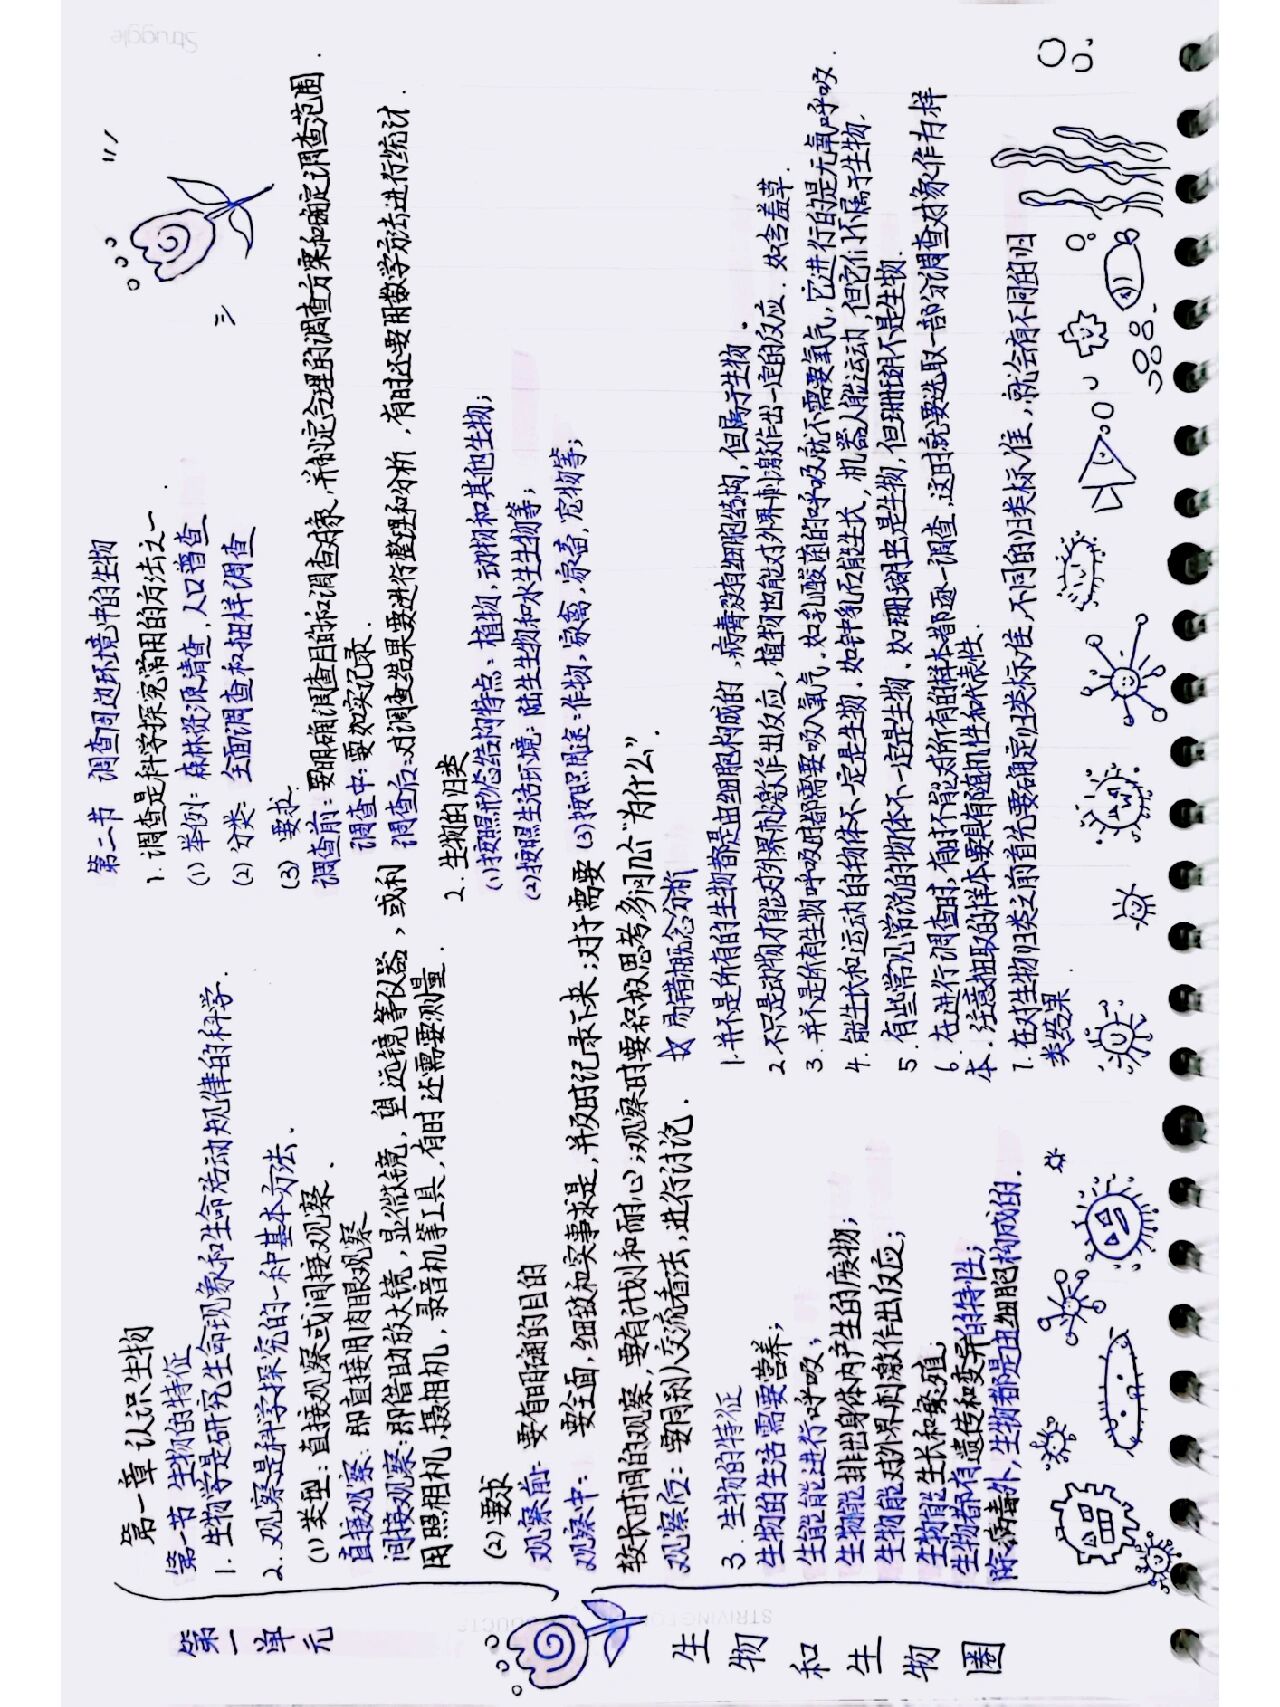 第一单元
生物和生物圈
第一章 认识生物
第一节 生物的特征
1. 生物学是研究生命现象和生命活动规律的科学.
2. 观察是科学探究的一种基本方法.
(1) 类型: 直接观察或间接观察.
直接观察: 即直接用肉眼观察
间接观察: 即借助放大镜, 显微镜, 望远镜等仪器, 或利
用照相机, 摄相机, 录音机等工具, 有时还需要测量.
(2) 要求
观察前: 要有明确的目的
观察中: 要全面, 细致和实事求是, 并及时记录下来; 对于需要
较长时间的观察, 要有计划和耐心; 观察时要积极思考, 多问几个“为什么”
观察后: 要同别人交流看法, 进行讨论.
3. 生物的特征
生物的生活需要营养;
生能能进行呼吸;
生物能排出身体内产生的废物;
生物能对外界刺激作出反应;
生物能生长和繁殖;
生物都有遗传和变异的特性;
除病毒外, 生物都是由细胞构成的.
第二节 调查周边环境中的生物
1. 调查是科学探究常用的方法之一.
(1) 举例: 森林资源清查, 人口普查
(2) 分类: 全面调查和抽样调查
(3) 要求
调查前: 要明确调查目的和调查对象, 并制定合理的调查方案和确定调查范围.
调查中: 要如实记录.
调查后: 对调查结果要进行整理和分析, 有时还要用数学方法进行统计.
2. 生物的归类
(1) 按照形态结构特点: 植物, 动物和其他生物;
(2) 按照生活环境: 陆生生物和水生生物等;
(3) 按照用途: 作物, 家禽, 家畜, 宠物等;
易错概念分析
1. 并不是所有的生物都是由细胞构成的, 病毒没有细胞结构, 但属于生物.
2. 不只是动物才能对外界刺激作出反应, 植物也能对外界刺激作出一定的反应. 如含羞草.
3. 并不是所有生物呼吸时都需要吸入氧气, 如乳酸菌的呼吸就不需要氧气, 它进行的是无氧呼吸.
4. 能生长和运动的物体不一定是生物, 如钟乳石能生长, 机器人能运动, 但它们不属于生物.
5. 有些常见常说的物体不一定是生物, 如珊瑚虫是生物, 但珊瑚不是生物.
6. 在进行调查时, 有时不能对所有的样本都逐一调查, 这时就要选取一部分调查对象作为样
本. 注意抽取的样本要具有随机性和代表性.
7. 在对生物归类之前首先要确定归类标准, 不同的归类标准, 就会有不同的归
类结果.
Struggle